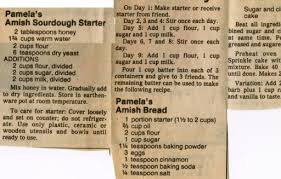 Pamela's
Amish Sourdough Starter
2 tablespoons honey
1¾ cups warm water
2 cups flour
6 teaspoons dry yeast
ADDITIONS
2 cups flour, divided
2 cups sugar, divided
2 cups milk, divided
Mix honey in water. Gradually add
to dry ingredients. Store in earthen-
ware pot at room temperature.
To care for starter: Cover loosely
and set on counter; do not refriger-
ate. Use only plastic, ceramic or
wooden utensils and bowls until
ready to use.
On Day 1: Make starter or receive
starter from friend.
Day 2, 3 and 4: Stir once each
day.
Day 5: Add 1 cup flour, 1 cup
sugar and 1 cup milk.
Day 6, 7 and 8: Stir once each
day.
Day 9: Add 1 cup flour, 1 cup
sugar and 1 cup milk.
Pour 1 cup batter into each of 3
containers and give to 3 friends. The
remaining batter can be used to make
the following recipe.
Pamela's
Amish Bread
1 portion starter (1½ to 2 cups)
⅔ cup oil
2 cups flour
1 cup sugar
1¼ teaspoons baking powder
3 eggs
1 teaspoon cinnamon
½ teaspoon baking soda
½ teaspoon salt
Sugar and
cake
Beat all ingredi
blend sugar and
at next time.
apart.
Preheat oven
Sprinkle cake wit
mixture. Bake 40
until done. Makes 2
Variation: Add
barb plus 1
and vanilla to taste